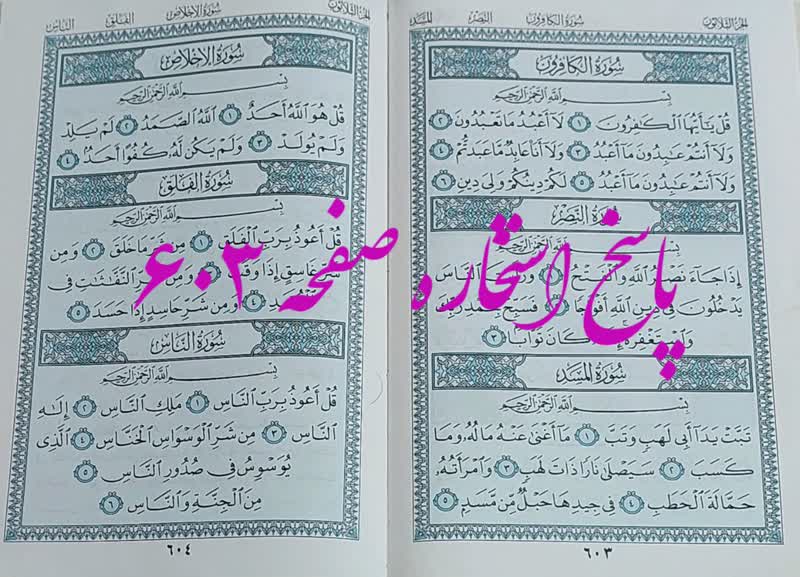 الجزء الثلاثون
سورة الكافرون
النصر
المسد
سُورَةُ الكَافِرُونَ
بِسْمِ اللَّهِ الرَّحْمَٰنِ الرَّحِيمِ
قُلْ يَٰٓأَيُّهَا ٱلْكَٰفِرُونَ ١ لَآ أَعْبُدُ مَا تَعْبُدُونَ ٢
وَلَآ أَنتُمْ عَٰبِدُونَ مَآ أَعْبُدُ ٣ وَلَآ أَنَا۠ عَابِدٌ مَّا عَبَدتُّمْ ٤
وَلَآ أَنتُمْ عَٰبِدُونَ مَآ أَعْبُدُ ٥ لَكُمْ دِينُكُمْ وَلِىَ دِينِ ٦
سُورَةُ النَّصْرِ
بِسْمِ اللَّهِ الرَّحْمَٰنِ الرَّحِيمِ
إِذَا جَآءَ نَصْرُ ٱللَّهِ وَٱلْفَتْحُ ١ وَرَ ٱلنَّاسَ
يَدْخُلُونَ فِى دِينِ ٱللَّهِ أَفْوَاجًا ٢ فَسَبِّحْ بِحَمْدِ رَبِّكَ
وَٱسْتَغْفِرْهُ كَانَ تَوَّابًۢا ٣
سُورَةُ المَسَدِ
بِسْمِ اللَّهِ الرَّحْمَٰنِ الرَّحِيمِ
تَبَّتْ يَدَآ أَبِى لَهَبٍ وَتَبَّ ١ مَآ أَغْنَىٰ عَنْهُ مَالُهُۥ وَمَا
كَسَبَ ٢ سَيَصْلَىٰ نَارًا ذَاتَ لَهَبٍ ٣ وَٱمْرَأَتُهُۥ
حَمَّالَةَ ٱلْحَطَبِ ٤ فِى جِيدِهَا حَبْلٌ مِّن مَّسَدٍۭ ٥
٦٠٣
الجزء الثلاثون
سورة الإخلاص
الفلق
الناس
سُورَةُ الإِخْلَاصِ
بِسْمِ اللَّهِ الرَّحْمَٰنِ الرَّحِيمِ
قُلْ هُوَ ٱللَّهُ أَحَدٌ ١ ٱللَّهُ ٱلصَّمَدُ ٢ لَمْ يَلِدْ
وَلَمْ يُولَدْ ٣ وَلَمْ يَكُن لَّهُۥ كُفُوًا أَحَدٌۢ ٤
سُورَةُ الفَلَقِ
بِسْمِ اللَّهِ الرَّحْمَٰنِ الرَّحِيمِ
قُلْ أَعُوذُ بِرَبِّ ٱلْفَلَقِ ١ مِن شَرِّ مَا خَلَقَ ٢ وَمِن
شَرِّ غَاسِقٍ إِذَا وَقَبَ ٣ وَمِن شَرِّ ٱلنَّفَّٰثَٰتِ فِى
ٱلْعُقَدِ ٤ وَمِن شَرِّ حَاسِدٍ إِذَا حَسَدَ ٥
سُورَةُ النَّاسِ
بِسْمِ اللَّهِ الرَّحْمَٰنِ الرَّحِيمِ
قُلْ أَعُوذُ بِرَبِّ ٱلنَّاسِ ١ مَلِكِ ٱلنَّاسِ ٢ إِلَٰهِ
ٱلنَّاسِ ٣ مِن شَرِّ ٱلْوَسْوَاسِ ٱلْخَنَّاسِ ٤ ٱلَّذِى
يُوَسْوِسُ فِى صُدُورِ ٱلنَّاسِ ٥
مِنَ ٱلْجِنَّةِ وَٱلنَّاسِ ٦
٦٠٤
پاسخ استخاره صفحه ۶۰۳